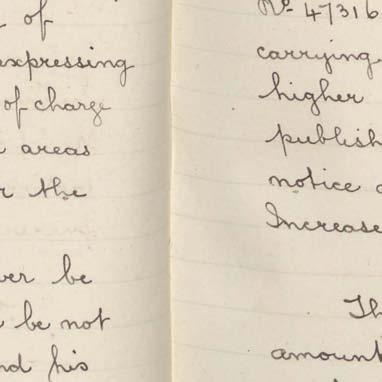 of
expressing
of charge
areas
the
be
be not
his
No. 47316
carrying
higher
publish
notice
Increase
Th
amount